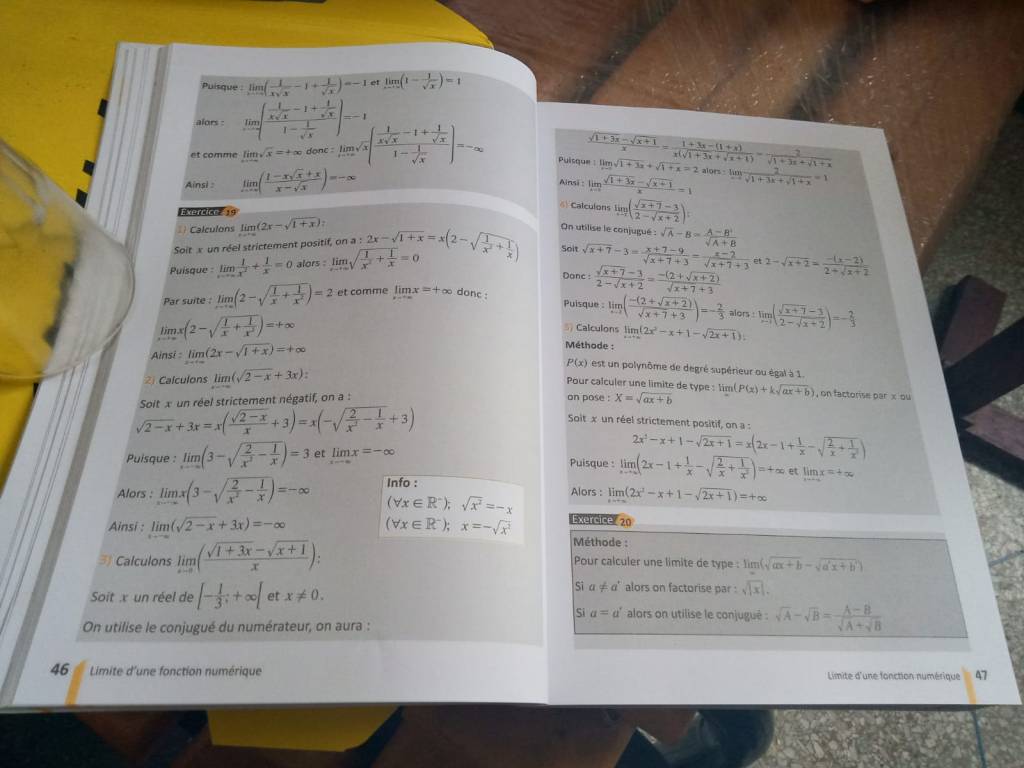 Puisque : lim_{x→+∞}(1/(x√x) − 1 + 1/√x) = −1 et lim_{x→+∞}(1 − 1/√x) = 1
alors : lim_{x→+∞}((1/(x√x) − 1 + 1/√x)/(1 − 1/√x)) = −1
et comme lim_{x→+∞}√x = +∞ donc : lim_{x→+∞}√x((1/(x√x) − 1 + 1/√x)/(1 − 1/√x)) = −∞
Ainsi : lim_{x→+∞}((1−x√x+x)/(x−√x)) = −∞
Exercice 19
1) Calculons lim_{x→+∞}(2x−√(1+x)) :
Soit x un réel strictement positif, on a : 2x−√(1+x) = x(2−√(1/x²+1/x))
Puisque : lim_{x→+∞} 1/x²+1/x = 0 alors : lim_{x→+∞}√(1/x²+1/x) = 0
Par suite : lim_{x→+∞}(2−√(1/x+1/x²)) = 2 et comme lim_{x→+∞}x = +∞ donc :
lim_{x→+∞}x(2−√(1/x+1/x²)) = +∞
Ainsi : lim_{x→+∞}(2x−√(1+x)) = +∞
2) Calculons lim_{x→−∞}(√(2−x)+3x) :
Soit x un réel strictement négatif, on a :
√(2−x)+3x = x(√(2−x)/x+3) = x(−√(2/x²−1/x)+3)
Puisque : lim_{x→−∞}(3−√(2/x²−1/x)) = 3 et lim_{x→−∞}x = −∞
Alors : lim_{x→−∞}x(3−√(2/x²−1/x)) = −∞
Ainsi : lim_{x→−∞}(√(2−x)+3x) = −∞
Info :
(∀x∈ℝ⁻); √x² = −x
(∀x∈ℝ⁻); x = −√x²
3) Calculons lim_{x→0}((√(1+3x)−√(x+1))/x) :
Soit x un réel de [−1/3; +∞[ et x≠0.
On utilise le conjugué du numérateur, on aura :
46 Limite d'une fonction numérique
(√(1+3x)−√(x+1))/x = (1+3x−(1+x))/(x(√(1+3x)+√(x+1))) = 2/(√(1+3x)+√(1+x))
Puisque : lim_{x→0}√(1+3x)+√(1+x) = 2 alors : lim_{x→0} 2/(√(1+3x)+√(1+x)) = 1
Ainsi : lim_{x→0} (√(1+3x)−√(x+1))/x = 1
4) Calculons lim_{x→2}((√(x+7)−3)/(2−√(x+2))) :
On utilise le conjugué : √A−B = (A−B²)/(√A+B)
Soit √(x+7)−3 = (x+7−9)/(√(x+7)+3) = (x−2)/(√(x+7)+3) et 2−√(x+2) = −(x−2)/(2+√(x+2))
Donc : (√(x+7)−3)/(2−√(x+2)) = −(2+√(x+2))/(√(x+7)+3)
Puisque : lim_{x→2}(−(2+√(x+2))/(√(x+7)+3)) = −2/3 alors : lim_{x→2}((√(x+7)−3)/(2−√(x+2))) = −2/3
5) Calculons lim_{x→+∞}(2x²−x+1−√(2x+1)) :
Méthode :
P(x) est un polynôme de degré supérieur ou égal à 1.
Pour calculer une limite de type : lim_{∞}(P(x)+k√(ax+b)), on factorise par x ou
on pose : X = √(ax+b)
Soit x un réel strictement positif, on a :
2x²−x+1−√(2x+1) = x(2x−1+1/x−√(2/x+1/x²))
Puisque : lim_{x→+∞}(2x−1+1/x−√(2/x+1/x²)) = +∞ et lim_{x→+∞}x = +∞
Alors : lim_{x→+∞}(2x²−x+1−√(2x+1)) = +∞
Exercice 20
Méthode :
Pour calculer une limite de type : lim_{∞}(√(ax+b)−√(a'x+b'))
Si a≠a' alors on factorise par : √|x|.
Si a=a' alors on utilise le conjugué : √A−√B = (A−B)/(√A+√B)
Limite d'une fonction numérique 47